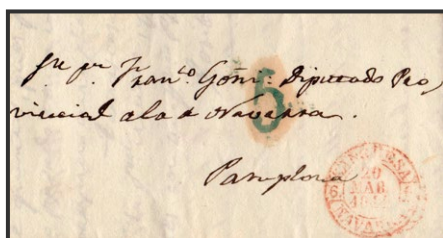 Franco Goñi. Diputado Pro,
vincial ala de Navarra.
5
Pamplona
20
MAR
NAVARRA